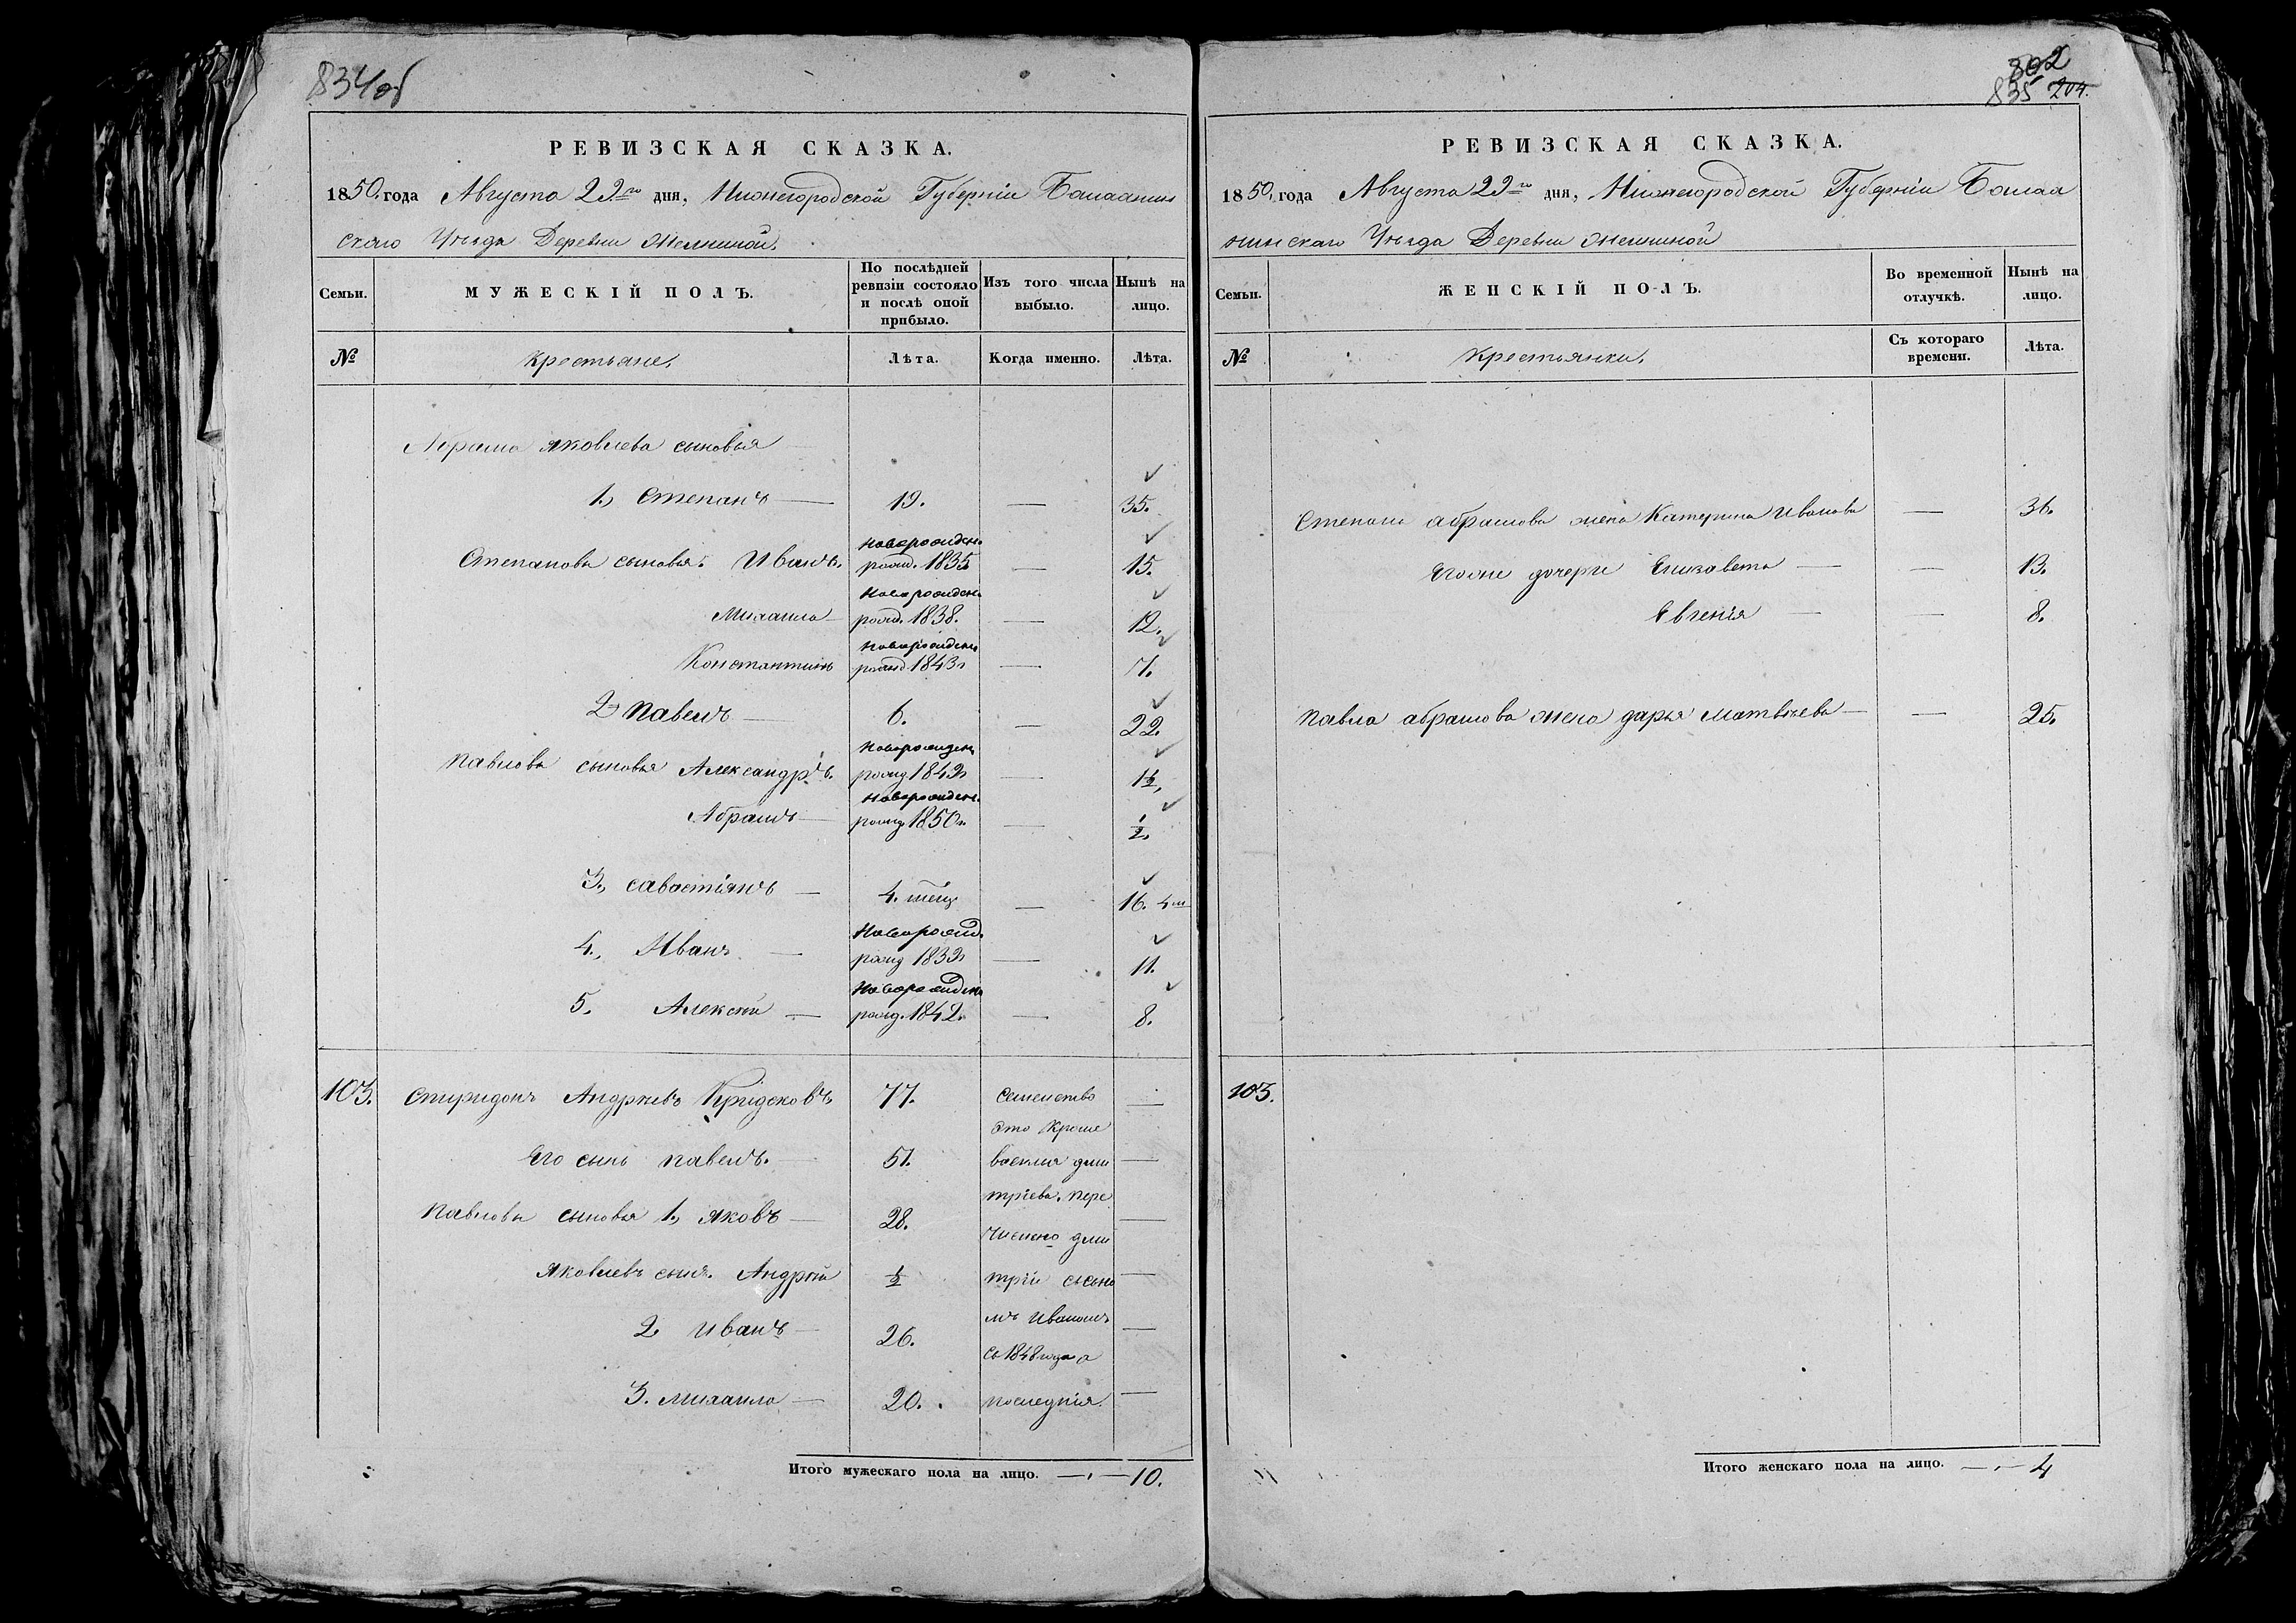 834об
РЕВИЗСКАЯ СКАЗКА.
1850. года Августа 22го дня, Нижегородской Губерніи Балахнин
скаго Уѣзда Деревни
Семьи.
МУЖЕСКІЙ ПОЛЪ.
По послѣдней ревизіи состояло и послѣ оной прибыло.
Изъ того числа выбыло.
Нынѣ на лицо.
№
Крестьяне.
Лѣта.
Когда именно.
Лѣта.
Абрама Яковлева сыновья
1., Степанъ — 19. — 35.
новорожден.
Степановы сыновья: Иванъ. рожд. 1835 — 15.
новорожден.
Михаила рожд. 1838. — 12.
новорожден
Константинъ рожд 1843 — 7.
2 Павелъ — 6. — 22.
новорожден
Павловы сыновья Александръ. рожд 1849 — 1½,
новорожден.
Абрамъ — рожд. 1850 — ½.
3., Савастіянъ — 4. мѣц — 16. 4 м
Новорожд.
4., Иванъ — рожд 1839 — 11.
Новорожден
5. Алексѣй — рожд. 1842. — 8.
103. Спиридонъ Андрѣевъ 77. Семейство —
это кроме
Его сынъ Павелъ. — 51. василия дми —
тріева. пере
Павловы сыновья 1., Яковъ — 28. —
числено дми
Яковлевъ сынъ. Андрѣй ½ трій ссыно —
2. Иванъ — 26. мъ Иваномъ —
съ 1848 года а
3. Михаила — 20. последнія. —
Итого мужескаго пола на лицо. — 10.
802
835 204.
РЕВИЗСКАЯ СКАЗКА.
1850, года Августа 22го дня, Нижегородской Губерніи Балах
нинскаго Уѣзда Деревни
Семьи.
ЖЕНСКІЙ ПОЛЪ.
Во временной отлучкѣ.
Нынѣ на лицо.
№
Крестьянки.
Съ котораго времени.
Лѣта.
Степана абрамова жена Катерина Иванова — 36.
Егоже дочери Елизавета — — 13.
Евгенія — — 8.
Павла абрамова жена дарья Матвѣева — — 25.
103.
Итого женскаго пола на лицо. — 4